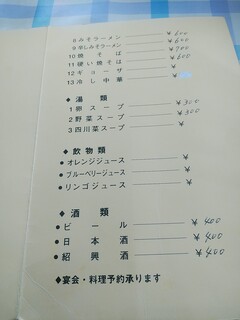 8 みそラーメン ¥600
9 辛しみそラーメン ¥600
10 焼そば ¥700
11 硬い焼そば ¥800
12 ギョーザ ¥
13 冷し中華 ¥
◆湯類
1 卵スープ ¥300
2 野菜スープ ¥300
3 四川菜スープ ¥
◆飲物類
●オレンジジュース ¥
●ブルーベリージュース ¥
●リンゴジュース ¥
◆酒類
●ビール ¥400
●日本酒 ¥400
●紹興酒 ¥400
◆宴会・料理予約承ります